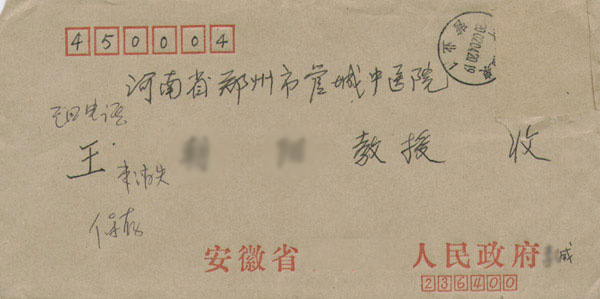 450004
河南省郑州市管城中医院
王 教授 收
保存
安徽省 人民政府
236400